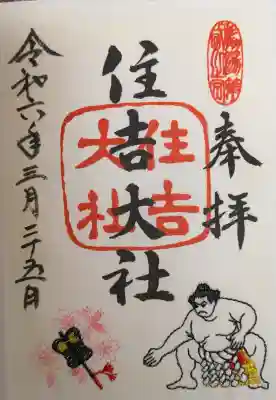 奉拝
住吉大社
住吉大社
令和六年三月二十五日